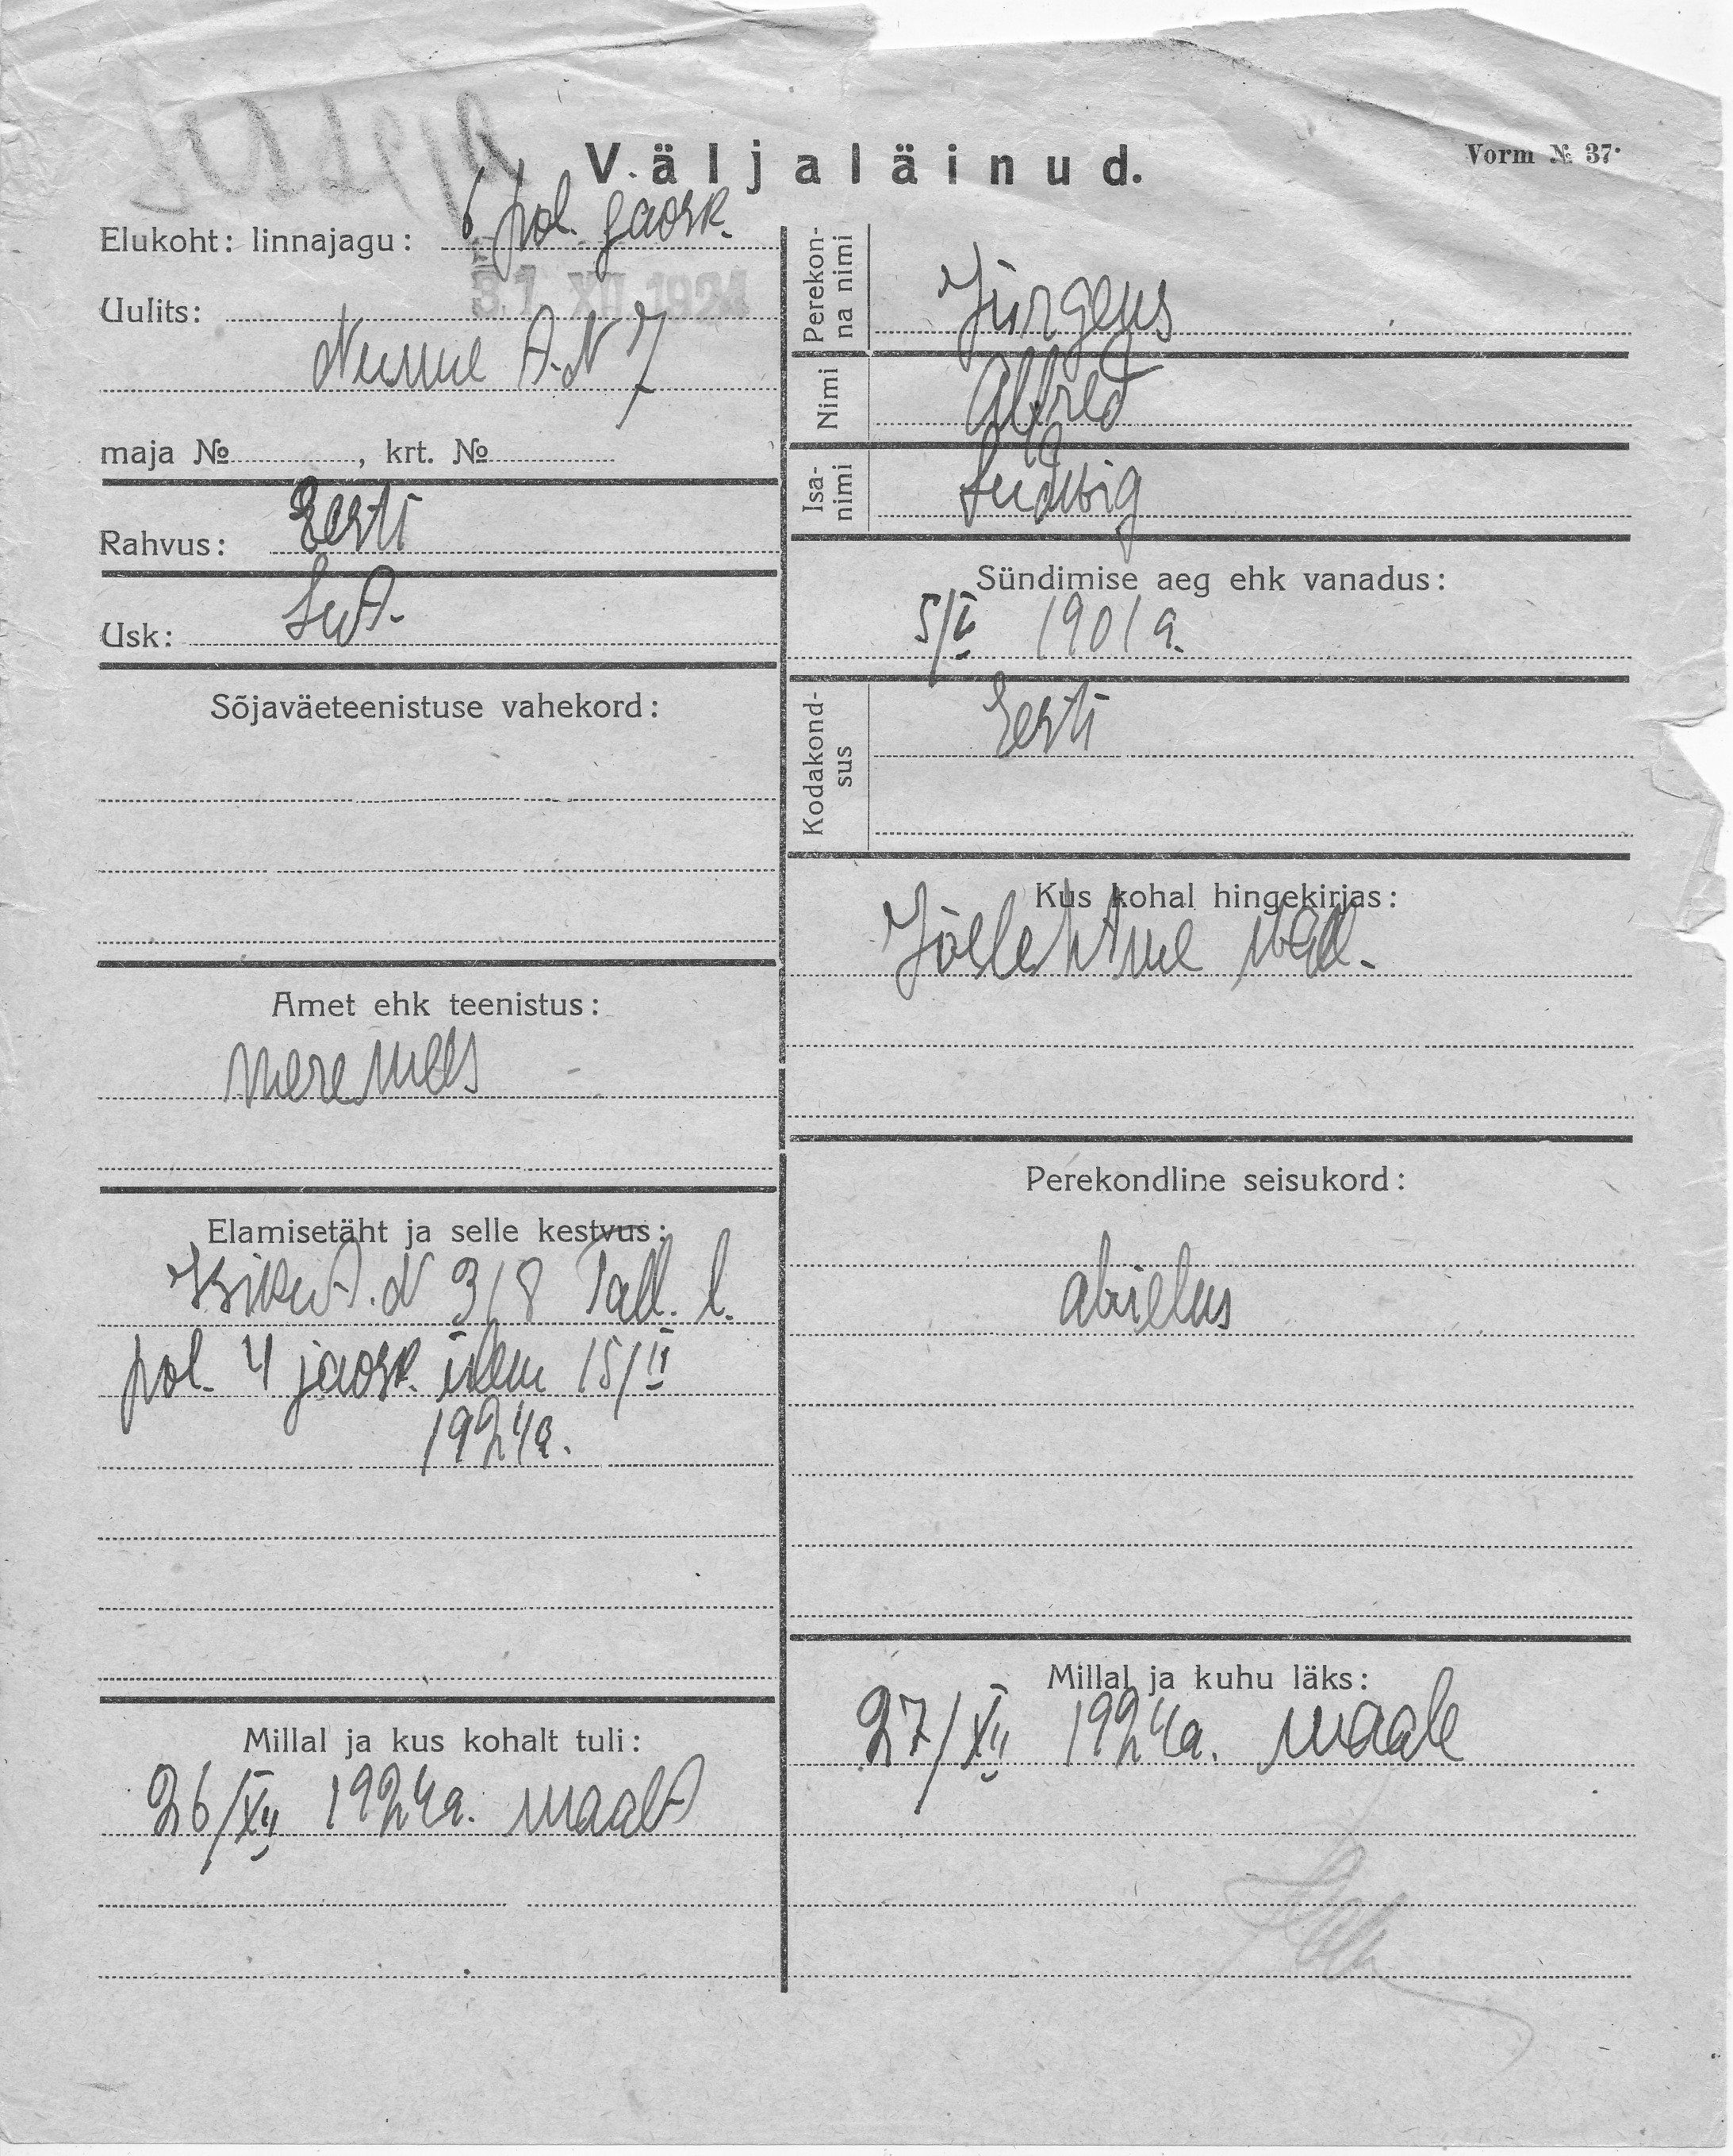 Väljaläinud.
Vorm № 37.
Elukoht: linnajagu: 6 pol. jaosk.
31 XII 1924
Uulits:
A. N 7
maja № , krt. №
Rahvus: Eesti
Usk: Lut.
Sõjaväeteenistuse vahekord:
Amet ehk teenistus:
meremees
Elamisetäht ja selle kestvus:
Isikut. N 318 Tall. l.
pol. 4 jaosk. ülem 15/II
1924a.
Millal ja kus kohalt tuli:
26/XII 1924a. maalt
Perekon-
na nimi
Jürgens
Nimi
Alfred
Isa-
nimi
Ludvig
Sündimise aeg ehk vanadus:
1901 a.
Kodakond-
sus
Eesti
Kus kohal hingekirjas:
Jõelehtme vald.
Perekondline seisukord:
abielus
Millal ja kuhu läks:
27/XII 1924a. maale